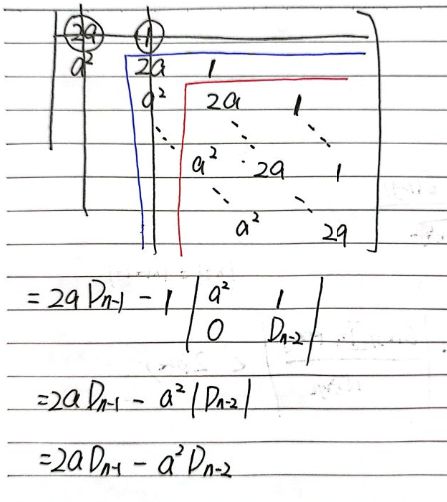 2a 1
a² 2a 1
a² 2a 1
a² 2a 1
a² 2a
= 2a Dn-1 - 1 | a² 1
0 Dn-2 |
= 2a Dn-1 - a² |Dn-2|
= 2a Dn-1 - a² Dn-2